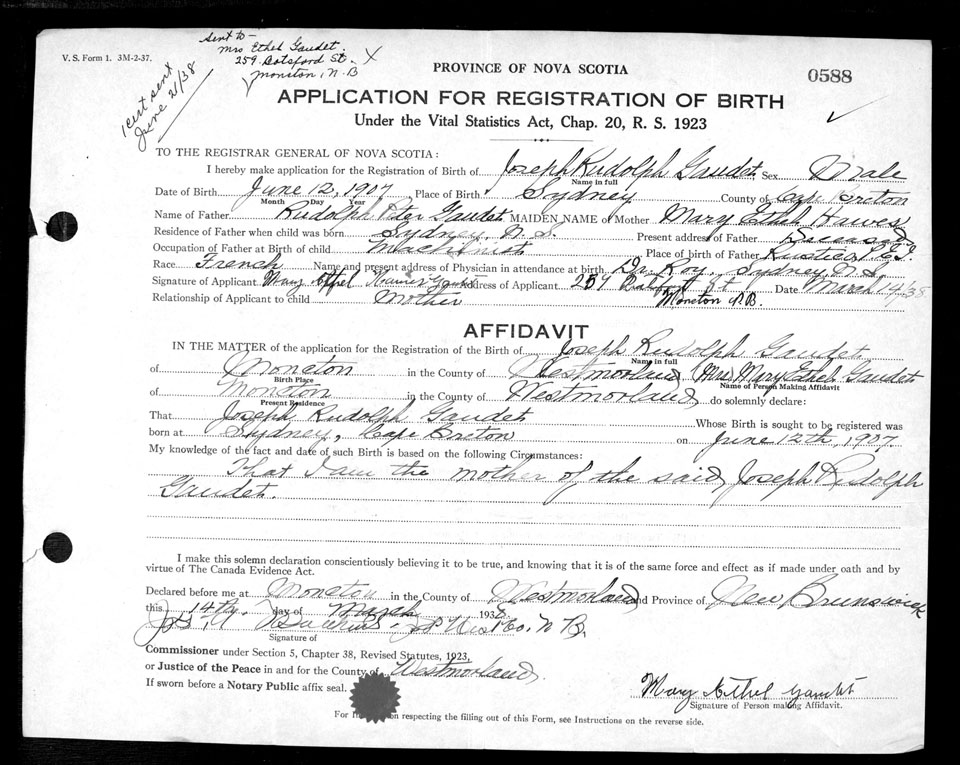 V. S. Form 1. 3M-2-37.
Sent to -
Mrs Ethel Gaudet.
259 Botsford St.
Moncton, N.B
cert sent
June 21/38
0588
PROVINCE OF NOVA SCOTIA
APPLICATION FOR REGISTRATION OF BIRTH
Under the Vital Statistics Act, Chap. 20, R. S. 1923
TO THE REGISTRAR GENERAL OF NOVA SCOTIA:
I hereby make application for Registration of Birth of Joseph Rudolph Gaudet Sex Male
Name in full
Date of Birth June 12, 1907 Place of Birth Sydney County of Cape Breton
Month Day Year
Name of Father Rudolph Peter Gaudet MAIDEN NAME of Mother Mary Ethel Hawes
Residence of Father when child was born Sydney, N. S. Present address of Father Deceased
Occupation of Father at Birth of child Machinist Place of birth of Father Rustico P.E.I.
Race French Name and present address of Physician in attendance at birth Dr. Roy, Sydney N. S.
Signature of Applicant Mary Ethel Gaudet Address of Applicant 259 Botsford St Date March 14/38
Moncton N B.
Relationship of Applicant to Child Mother
AFFIDAVIT
IN THE MATTER of the application for the Registration of the Birth of Joseph Rudolph Gaudet
Name in full
of Moncton in the County of Westmorland, Mrs Mary Ethel Gaudet
Birth Place Name of Person Making Affidavit
of Moncton in the County of Westmorland do solemnly declare:
Present Residence
That Joseph Rudolph Gaudet Whose Birth is sought to be registered was
born at Sydney, Cape Breton on June 12th, 1907.
My knowledge of the fact and date of such Birth is based on the following Circumstances:
That I am the mother of the said Joseph Rudolph
Gaudet.
I make this solemn declaration conscientiously believing it to be true, and knowing that it is of the same force and effect as if made under oath and by
virtue of The Canada Evidence Act.
Declared before me at Moncton in the County of Westmorland and Province of New Brunswick
this 14th day of March 1938
J.P. West Co. N B.
Signature of
Commissioner under Section 5, Chapter 38, Revised Statutes, 1923,
or Justice of the Peace in and for the County of Westmorland.
If sworn before a Notary Public affix seal.
Mary Ethel Gaudet
Signature of Person making Affidavit.
For respecting the filling out of this Form, see Instructions on the reverse side.